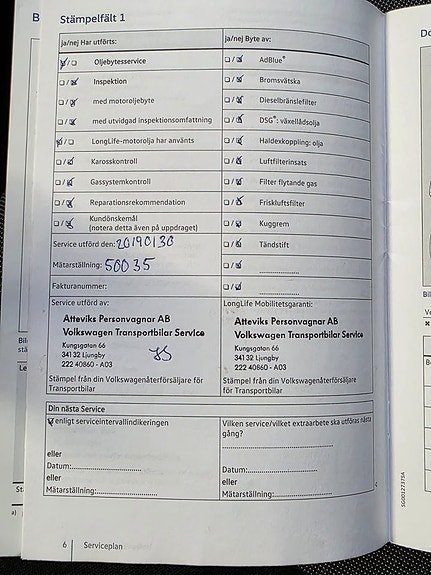 B
Stämpelfält 1
ja/nej Har utförts:
Oljebytesservice
Inspektion
med motoroljebyte
med utvidgad inspektionsomfattning
LongLife-motorolja har använts
Karosskontroll
Gassystemkontroll
Reparationsrekommendation
Kundönskemål
(notera detta även på uppdraget)
Service utförd den: 20190130
Mätarställning: 50035
Fakturanummer:
ja/nej Byte av:
AdBlue®
Bromsvätska
Dieselbränslefilter
DSG®: växellådsolja
Haldexkoppling: olja
Luftfilterinsats
Filter flytande gas
Friskluftsfilter
Kuggrem
Tändstift
Service utförd av:
Atteviks Personvagnar AB
Volkswagen Transportbilar Service
Kungsgatan 66
341 32 Ljungby
222 40860 - A03
Stämpel från din Volkswagenåterförsäljare för
Transportbilar
LongLife Mobilitetsgaranti:
Atteviks Personvagnar AB
Volkswagen Transportbilar Service
Kungsgatan 66
341 32 Ljungby
222 40860 - A03
Stämpel från din Volkswagenåterförsäljare för
Transportbilar
Din nästa Service
enligt serviceintervallindikeringen
eller
Datum:
eller
Mätarställning:
Vilken service/vilket extraarbete ska utföras nästa
gång?
Datum:
eller
Mätarställning:
6 Serviceplan
Do